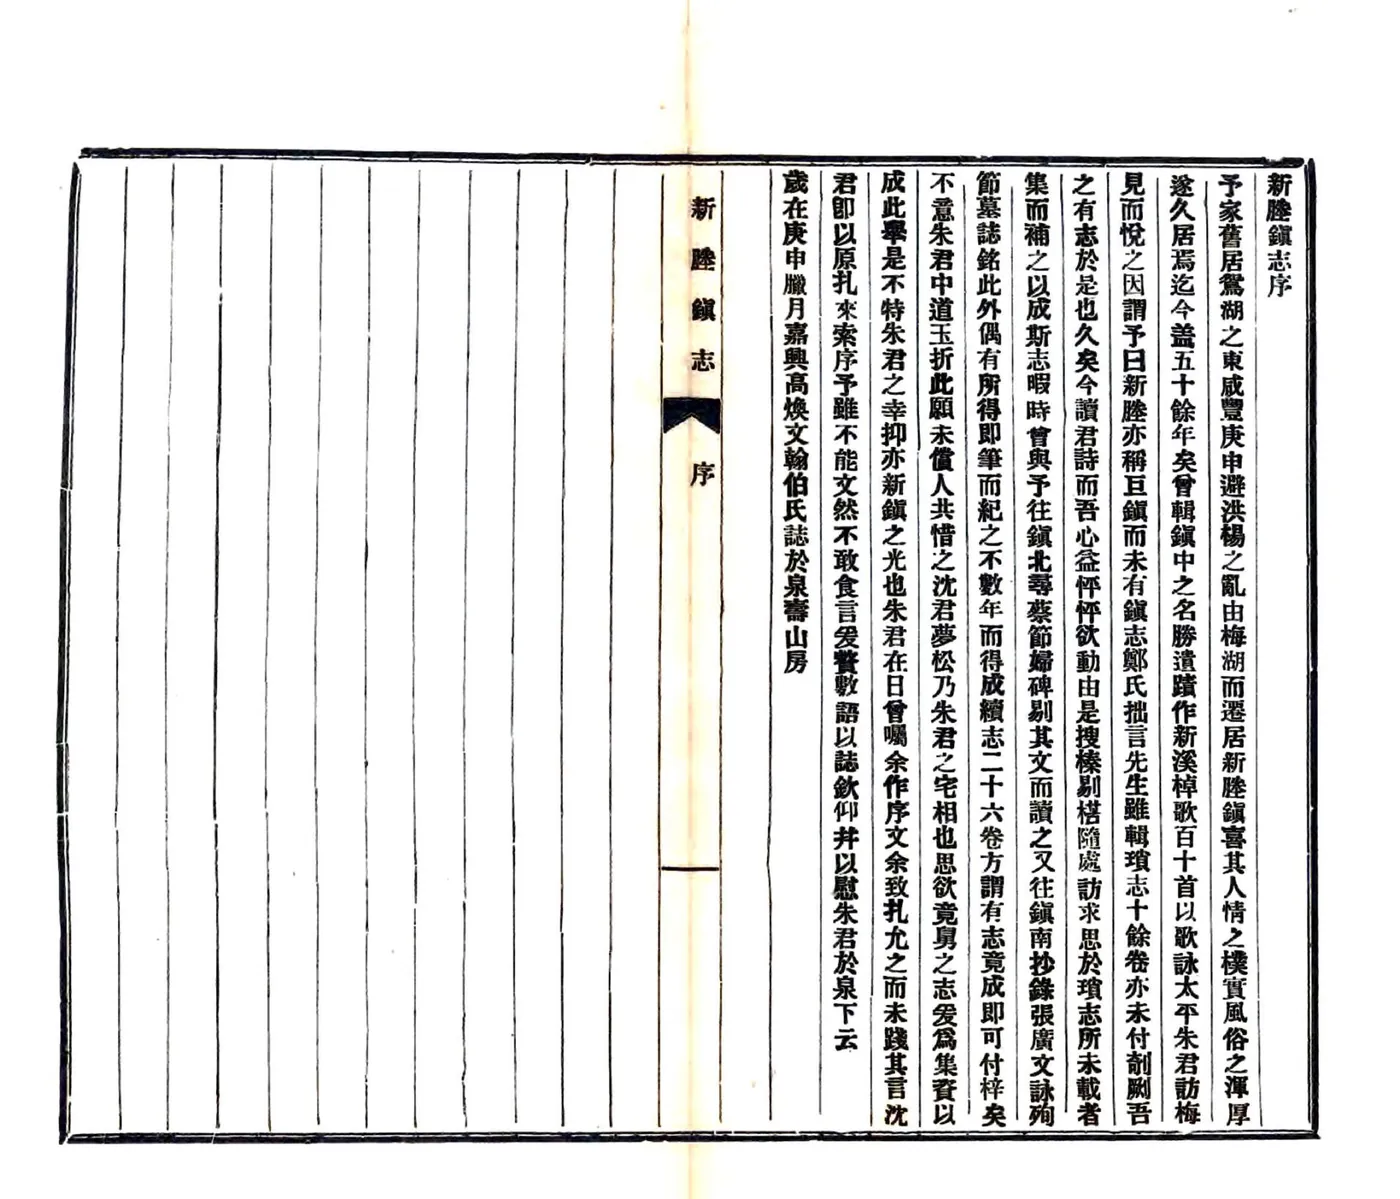 新塍鎭志序
予家舊居鴛湖之東咸豐庚申避洪楊之亂由梅湖而遷居新塍鎭喜其人情之樸實風俗之渾厚
遂久居焉迄今蓋五十餘年矣曾輯鎭中之名勝遺蹟作新溪棹歌百十首以歌詠太平朱君訪梅
見而悅之因謂予曰新塍亦稱巨鎭而未有鎭志鄭氏拙言先生雖輯瑣志十餘卷亦未付剞劂吾
之有志於是也久矣今讀君詩而吾心益怦怦欲動由是搜榛剔楛隨處訪求思於瑣志所未載者
集而補之以成斯志暇時曾與予往鎭北尋蔡節婦碑剔其文而讀之又往鎭南抄錄張廣文詠殉
節墓誌銘此外偶有所得即筆而紀之不數年而得成續志二十六卷方謂有志竟成即可付梓矣
不意朱君中道玉折此願未償人共惜之沈君夢松乃朱君之宅相也思欲竟舅之志爰爲集資以
成此舉是不特朱君之幸抑亦新鎭之光也朱君在日曾囑余作序文余致扎允之而未踐其言沈
君即以原扎來索序予雖不能文然不敢食言爰贅數語以誌欽仰幷以慰朱君於泉下云
歲在庚申臘月嘉興高煥文翰伯氏誌於泉壽山房
新塍鎭志
序